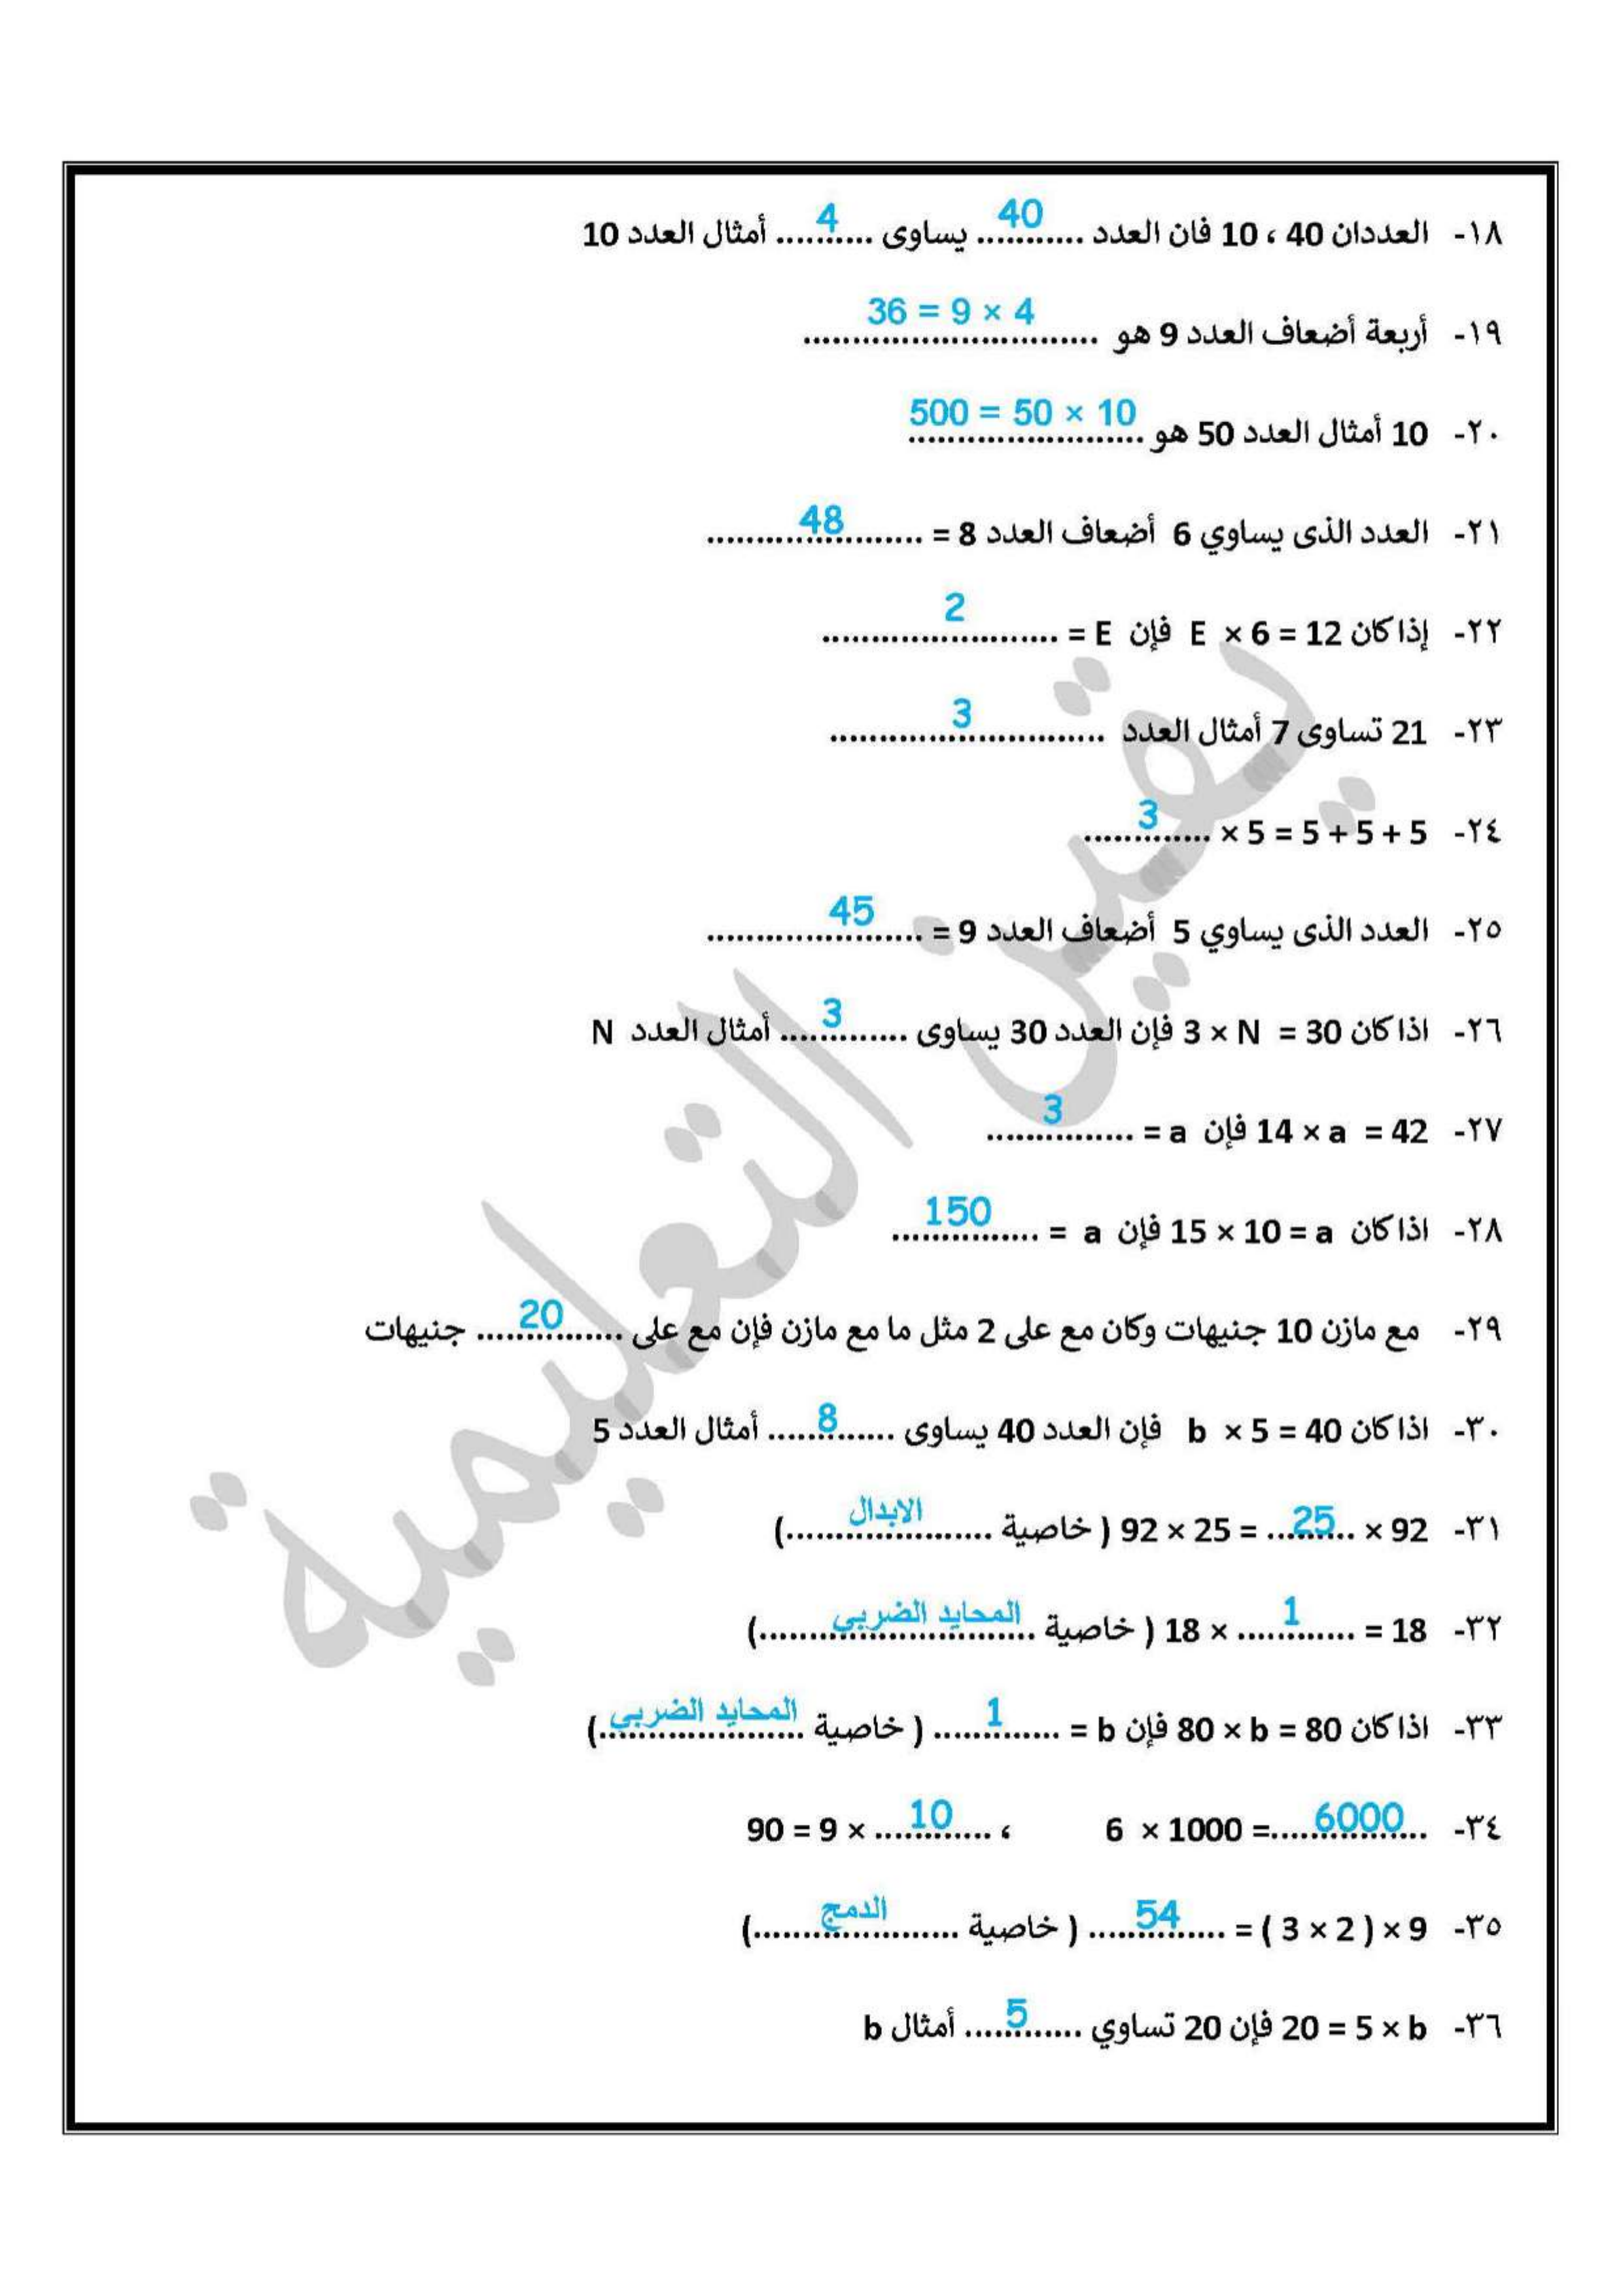 ١٨- العددان 40 ، 10 فان العدد ............ 40 يساوى .......... 4 أمثال العدد 10
١٩- أربعة أضعاف العدد 9 هو .............................. 36 = 9 × 4
٢٠- 10 أمثال العدد 50 هو ........................ 500 = 50 × 10
٢١- العدد الذى يساوي 6 أضعاف العدد 8 = ...................... 48
٢٢- إذا كان E × 6 = 12 فإن E = ........................ 2
٢٣- 21 تساوى 7 أمثال العدد ............................ 3
٢٤- ............. 3 × 5 = 5 + 5 + 5
٢٥- العدد الذى يساوي 5 أضعاف العدد 9 = ...................... 45
٢٦- اذا كان 3 × N = 30 فإن العدد 30 يساوى ............. 3 أمثال العدد N
٢٧- 14 × a = 42 فإن a = ............... 3
٢٨- اذا كان 15 × 10 = a فإن a = ............... 150
٢٩- مع مازن 10 جنيهات وكان مع على 2 مثل ما مع مازن فإن مع على ............... 20 جنيهات
٣٠- اذا كان b × 5 = 40 فإن العدد 40 يساوى ............. 8 أمثال العدد 5
٣١- 92 × 25 = ......... 25 × 92 ( خاصية ..................... الابدال)
٣٢- 18 × ............ 1 = 18 ( خاصية ............................ المحايد الضربي)
٣٣- اذا كان 80 × b = 80 فإن b = ............. 1 ( خاصية ..................... المحايد الضربي)
٣٤- 6 × 1000 =................ 6000 ، 90 = 9 × ............ 10
٣٥- 9 × ( 2 × 3 ) = .............. 54 ( خاصية ..................... الدمج)
٣٦- 20 = 5 × b فإن 20 تساوي ............ 5 أمثال b
يقين التعليمية